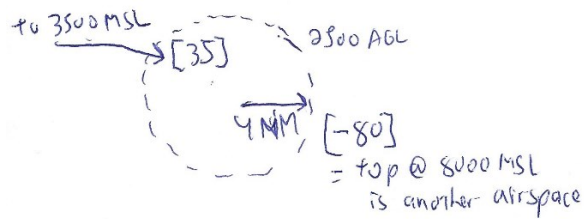 to 3500 MSL
[35]
2500 AGL
4 NM
[-80]
= top @ 8000 MSL
is another airspace